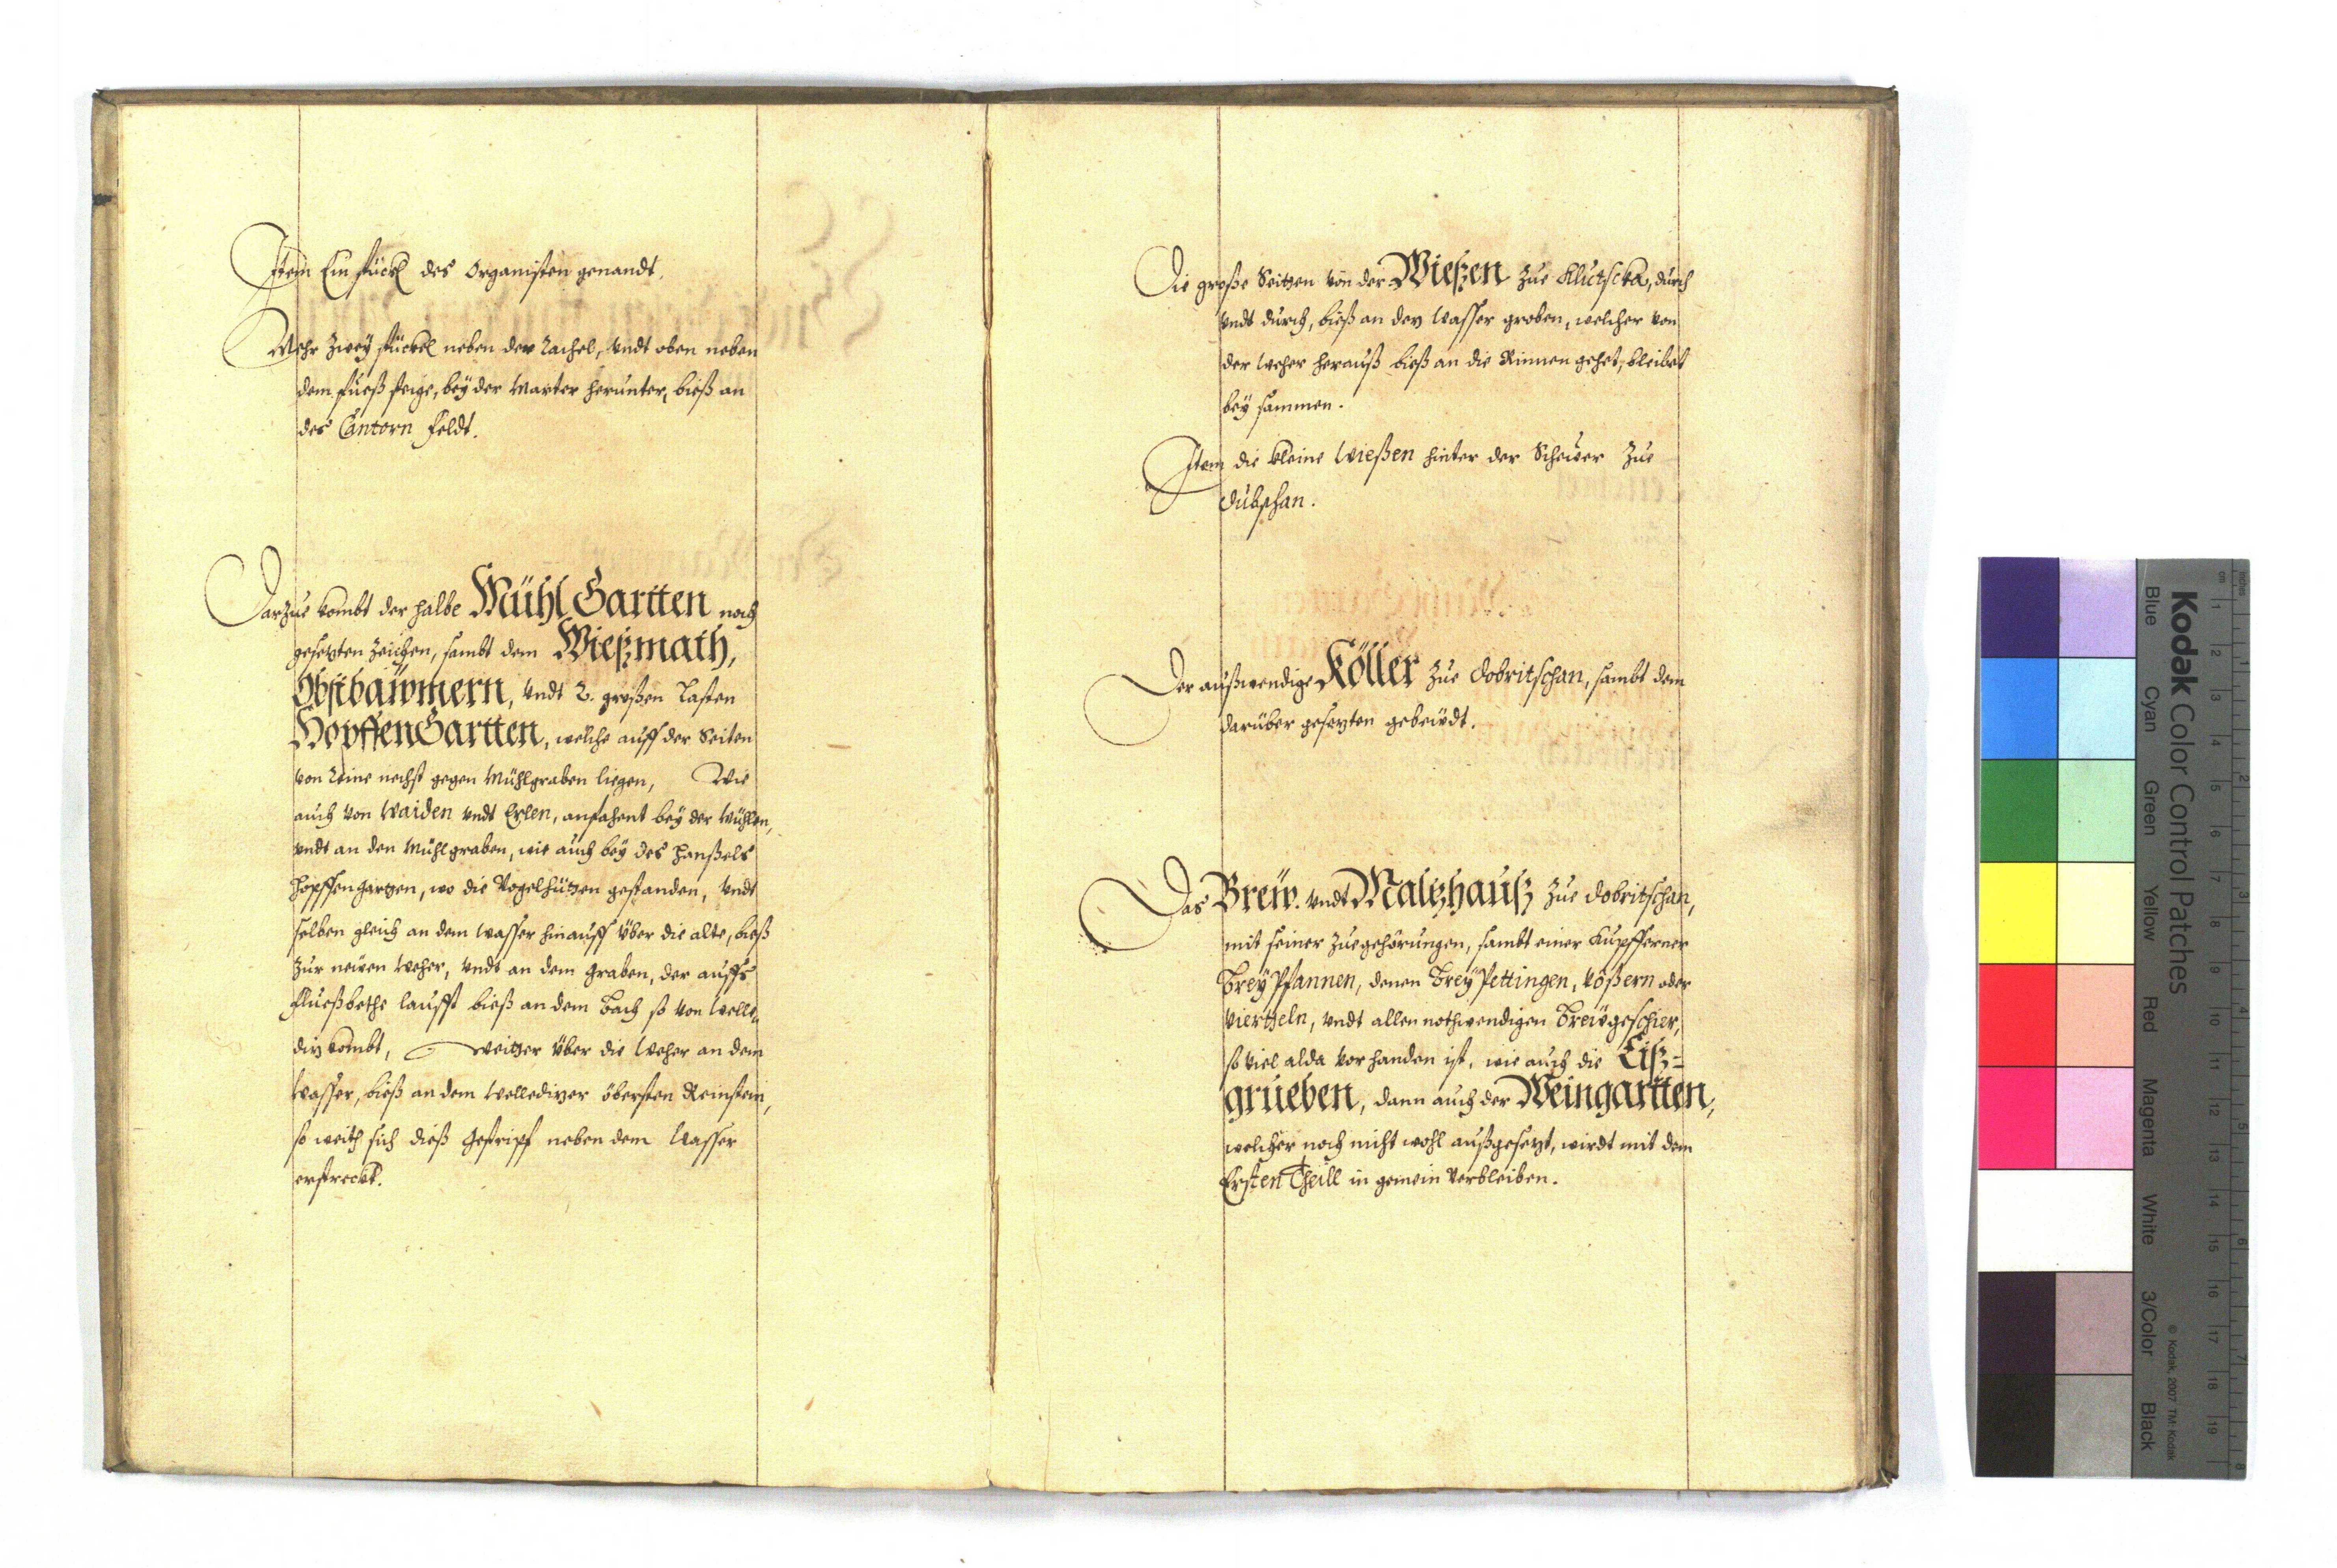 Item Ein stückl des Organisten genandt.
Mehr Zwey stückel neben der Rachel, Undt oben neben
dem fueß steige, bey der Marter herunter, bieß an
des Cantorn feldt.
Darzue kombt der halbe Mühl Gartten nach
gesezten Zeichen, sambt dem Wießmath,
Obstbäwmern, Undt 2. großen Casten
HopffenGartten, welche auff der Seiten
von Reine nechst gegen Mühlgraben liegen, Wie
auch von Waiden undt Erlen, anfahent bey der Mühlen,
undt an den Mühlgraben, wie auch bey des Hanßels
Hopffengartten, wo die Vogelhütten gestanden, Undt
selben gleich an dem Wasser hinauff über die alte, bieß
Zur newen Weher, Undt an dem graben, der auffs
Flueßbethe laufft bieß an dem Bach so von Welle-
diz kombt, weitter über die Weher an dem
Wasser, bieß an dem Wellediczer öbersten Reinstein,
so weith sich dieß Gestripf neben dem Wasser
erstreckt.
Die große Seitten von der Wießen Zue Klutscka, durch
Undt durch, bieß an den Wasser graben, welcher von
der Weher herauß bieß an die Rinnen gehet, bleibet
bey sammen.
Item die kleine Wießen hinter der Schewer Zue
Dubschan.
Der außwendige Köller Zue Dobritschan, sambt dem
darüber gesezten gebewdt.
Das Brew. undt Maltzhauß Zue Dobritschan,
mit seiner Zuegehörungen, sambt einer Kupfferner
Brey Pfannen, denen Brey Pettingen, Vößern oder
Viertteln, Undt allen nothwendigen Brewgeschier,
so viel alda vorhanden ist, wie auch die Eiß=
grueben, dann auch der Weingartten,
welcher noch nicht wohl außgesezt, wirdt mit dem
Ersten Theill in gemein Verbleiben.
Kodak Color Control Patches
Blue Cyan Green Yellow Red Magenta White 3/Color Black
© Kodak, 2007 TM: Kodak
inches 1 2 3 4 5 6 7 8
cm 1 2 3 4 5 6 7 8 9 10 11 12 13 14 15 16 17 18 19